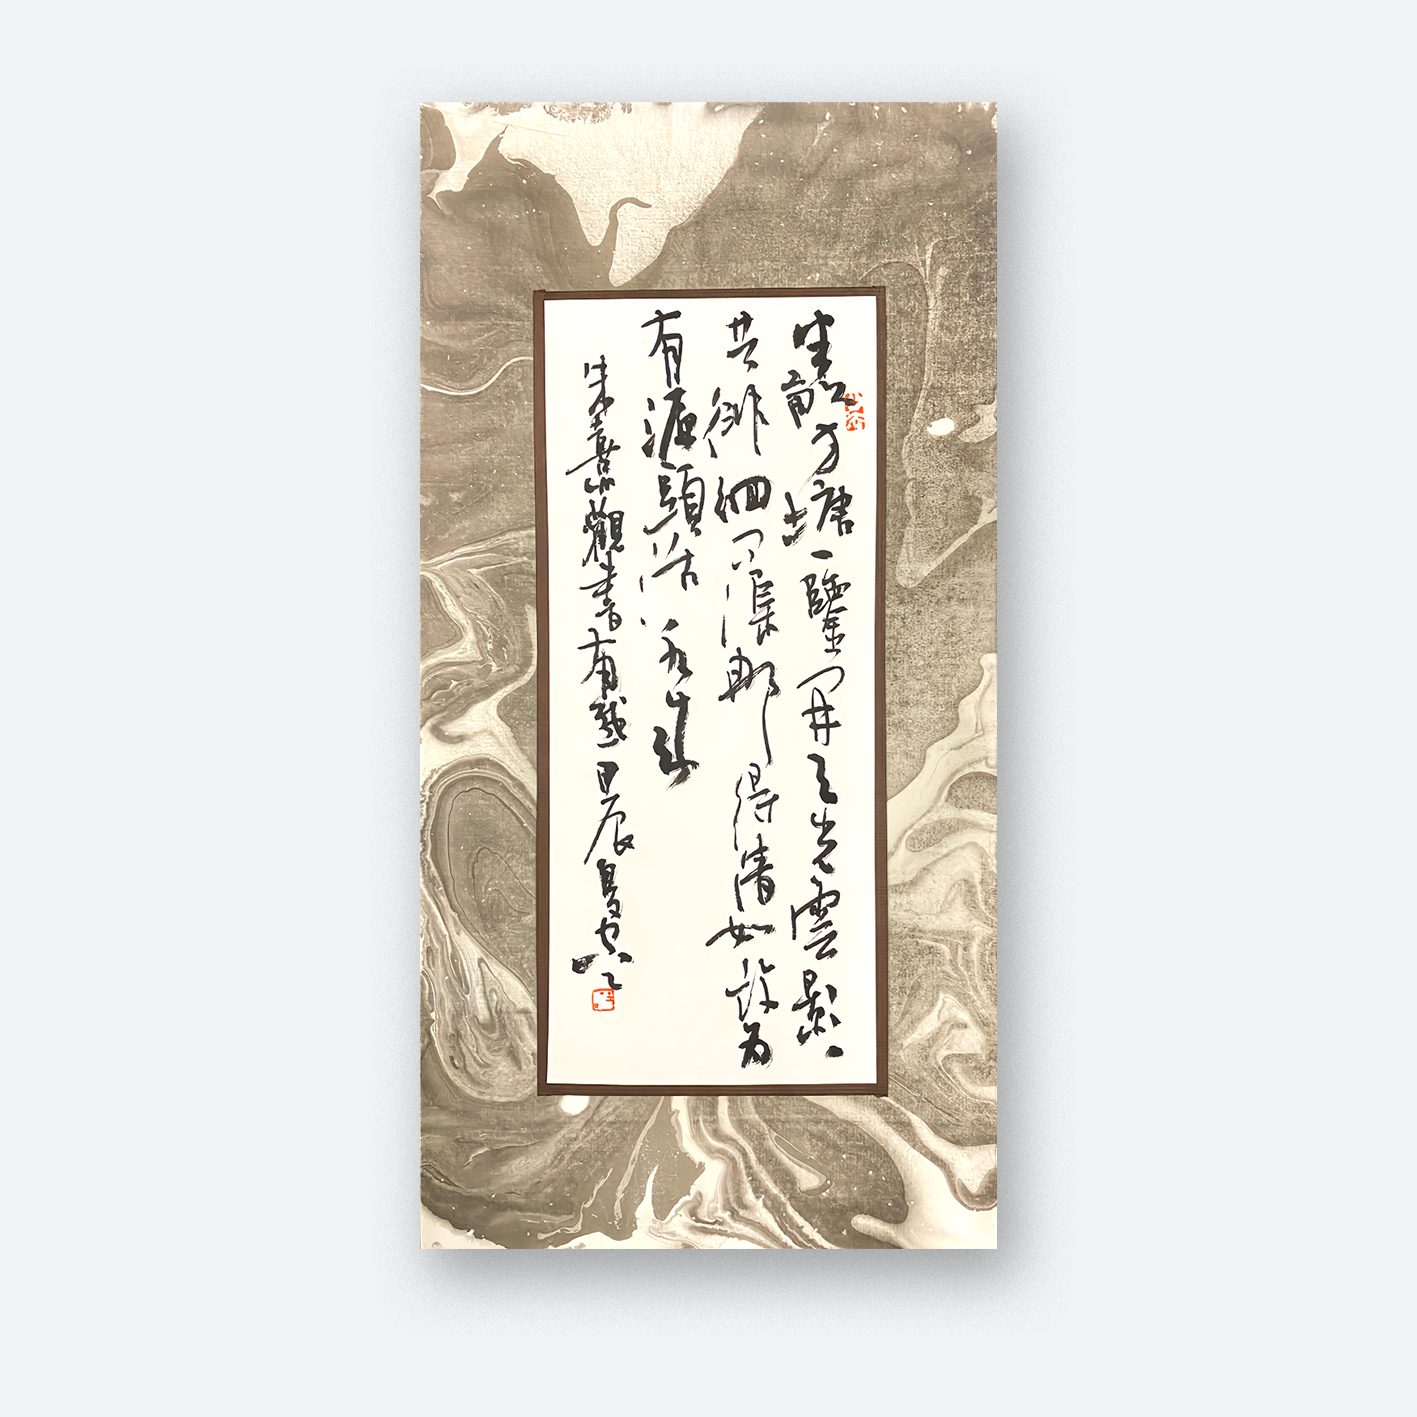 半畝方塘一鑒開天光雲影
共徘徊問渠那得清如許為
有源頭活水來
朱熹觀書有感甲辰